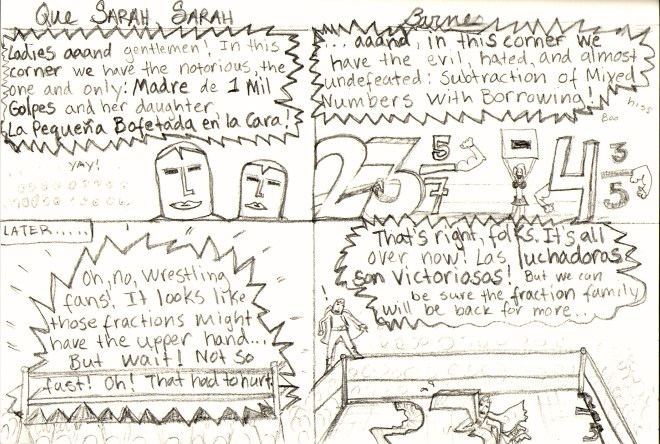 Que SARAH, SARAH
Ladies aaand gentlemen! In this
corner we have the notorious, the
one and only: Madre de 1 Mil
Golpes and her daughter
La Pequeña Bofetada en la Cara!
YAY!
... aaand, in this corner we
have the evil, hated, and almost
undefeated: Subtraction of Mixed
Numbers With Borrowing!
hiss
Boo
23 5/7 - 4 3/5
LATER......
Oh, no, wrestling
fans! It looks like
those fractions might
have the upper hand...
But wait! Not so
fast! Oh! That had to hurt
!
That's right, folks. It's all
over now! Las luchadoras
son victoriosas! But we can
be sure the fraction family
will be back for more...